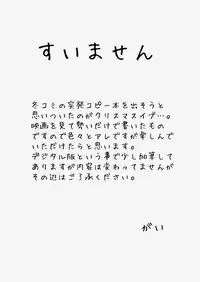 すいません
冬コミの突発コピー本を出そうと
思いついたのがクリスマスイブ…。
映画を見て勢いだけで書いたもの
ですので色々とアレですが楽しんで
いただけたらと思います。
デジタル版という事で少し加筆して
ありますが内容は変わってませんが
その辺はご了承ください。
がい